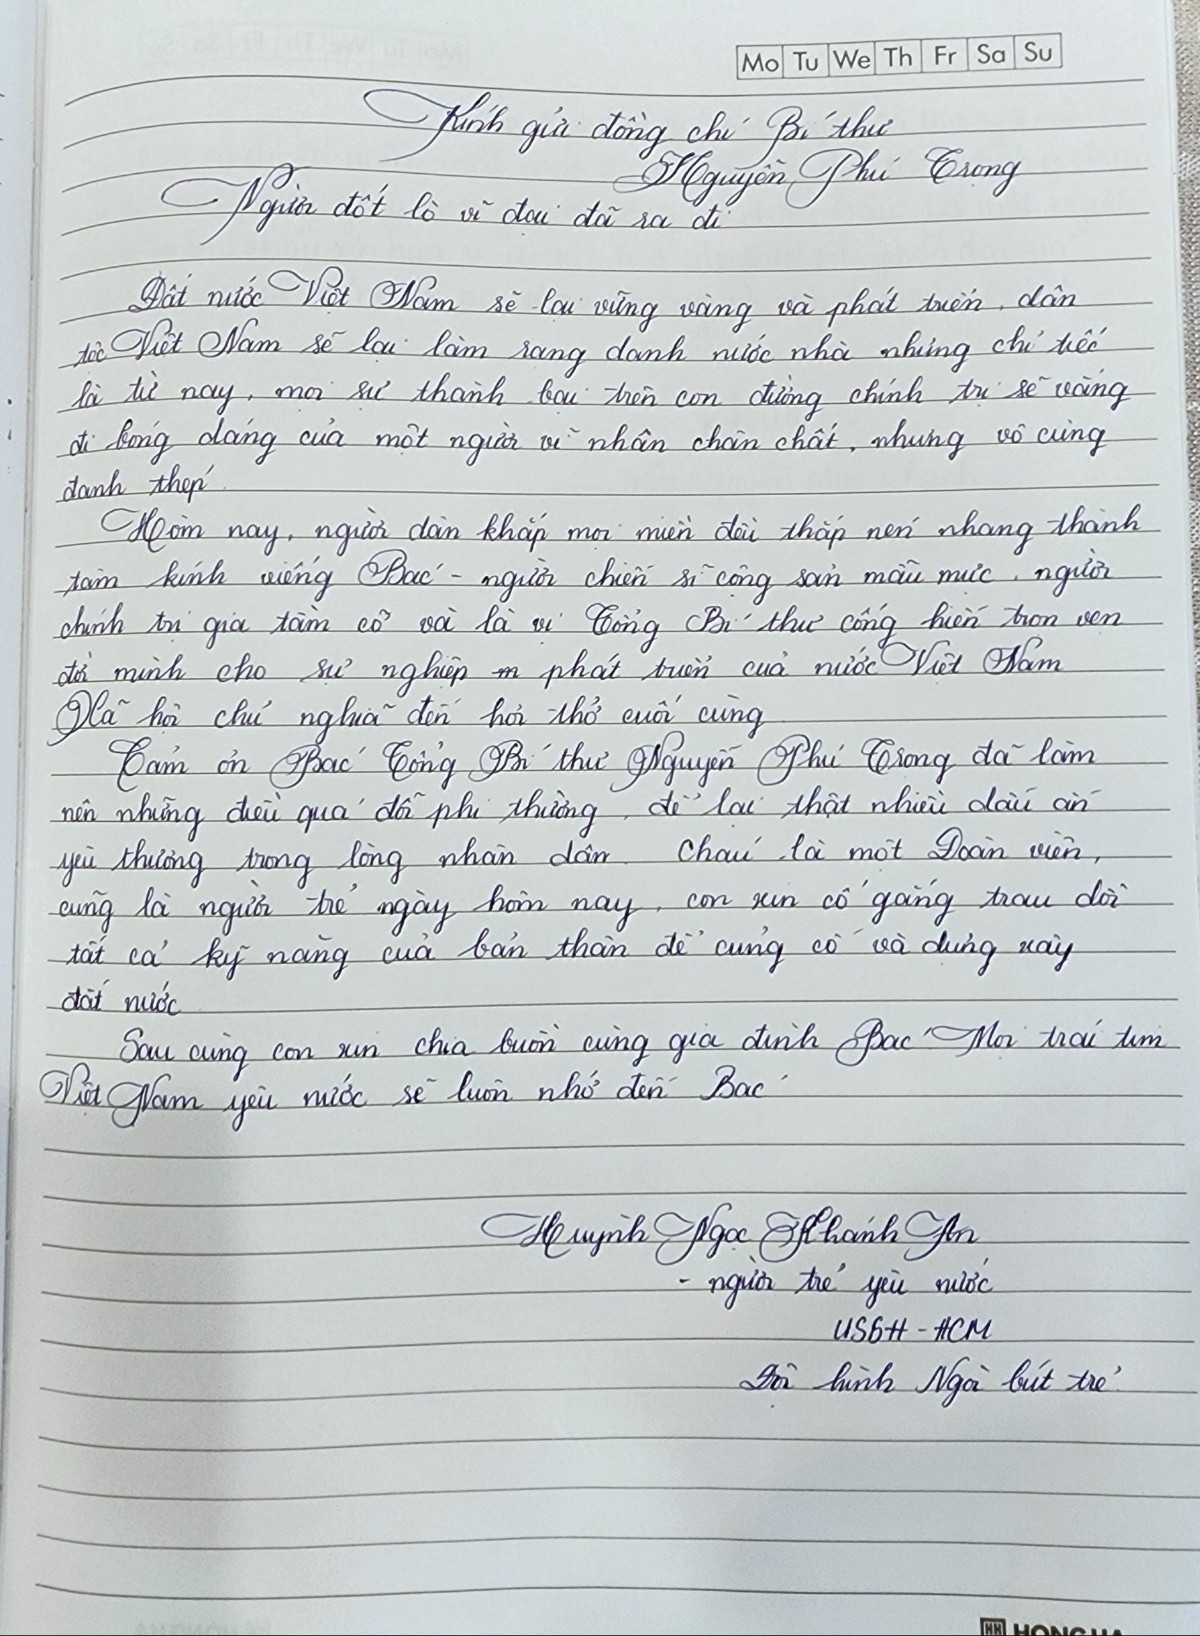 Mo Tu We Th Fr Sa Su
Kính gửi đồng chí Bí thư
Nguyễn Phú Trọng
Người đốt lò vĩ đại đã ra đi
Đất nước Việt Nam sẽ lại vững vàng và phát triển, dân
tộc Việt Nam sẽ lại làm rạng danh nước nhà nhưng chỉ tiếc
là từ nay, mọi sự thành bại trên con đường chính trị sẽ vắng
đi bóng dáng của một người vĩ nhân chân chất, nhưng vô cùng
đanh thép.
Hôm nay, người dân khắp mọi miền đều thắp nén nhang thành
tâm kính viếng Bác - người chiến sĩ cộng sản mẫu mực, người
chính trị gia tầm cỡ và là vị Tổng Bí thư cống hiến trọn vẹn
đời mình cho sự nghiệp phát triển của nước Việt Nam
Xã hội chủ nghĩa đến hơi thở cuối cùng
Cảm ơn Bác Tổng Bí thư Nguyễn Phú Trọng đã làm
nên những điều quá đỗi phi thường, để lại thật nhiều dấu ấn
yêu thương trong lòng nhân dân. Cháu là một Đoàn viên,
cũng là người trẻ ngày hôm nay, con xin cố gắng trau dồi
tất cả kỹ năng của bản thân để củng cố và dựng xây
đất nước
Sau cùng con xin chia buồn cùng gia đình Bác. Mọi trái tim
Việt Nam yêu nước sẽ luôn nhớ đến Bác
Huỳnh Ngọc Khánh An
- người trẻ yêu nước
USSH - HCM
Đội hình Ngòi bút trẻ
HONG HA